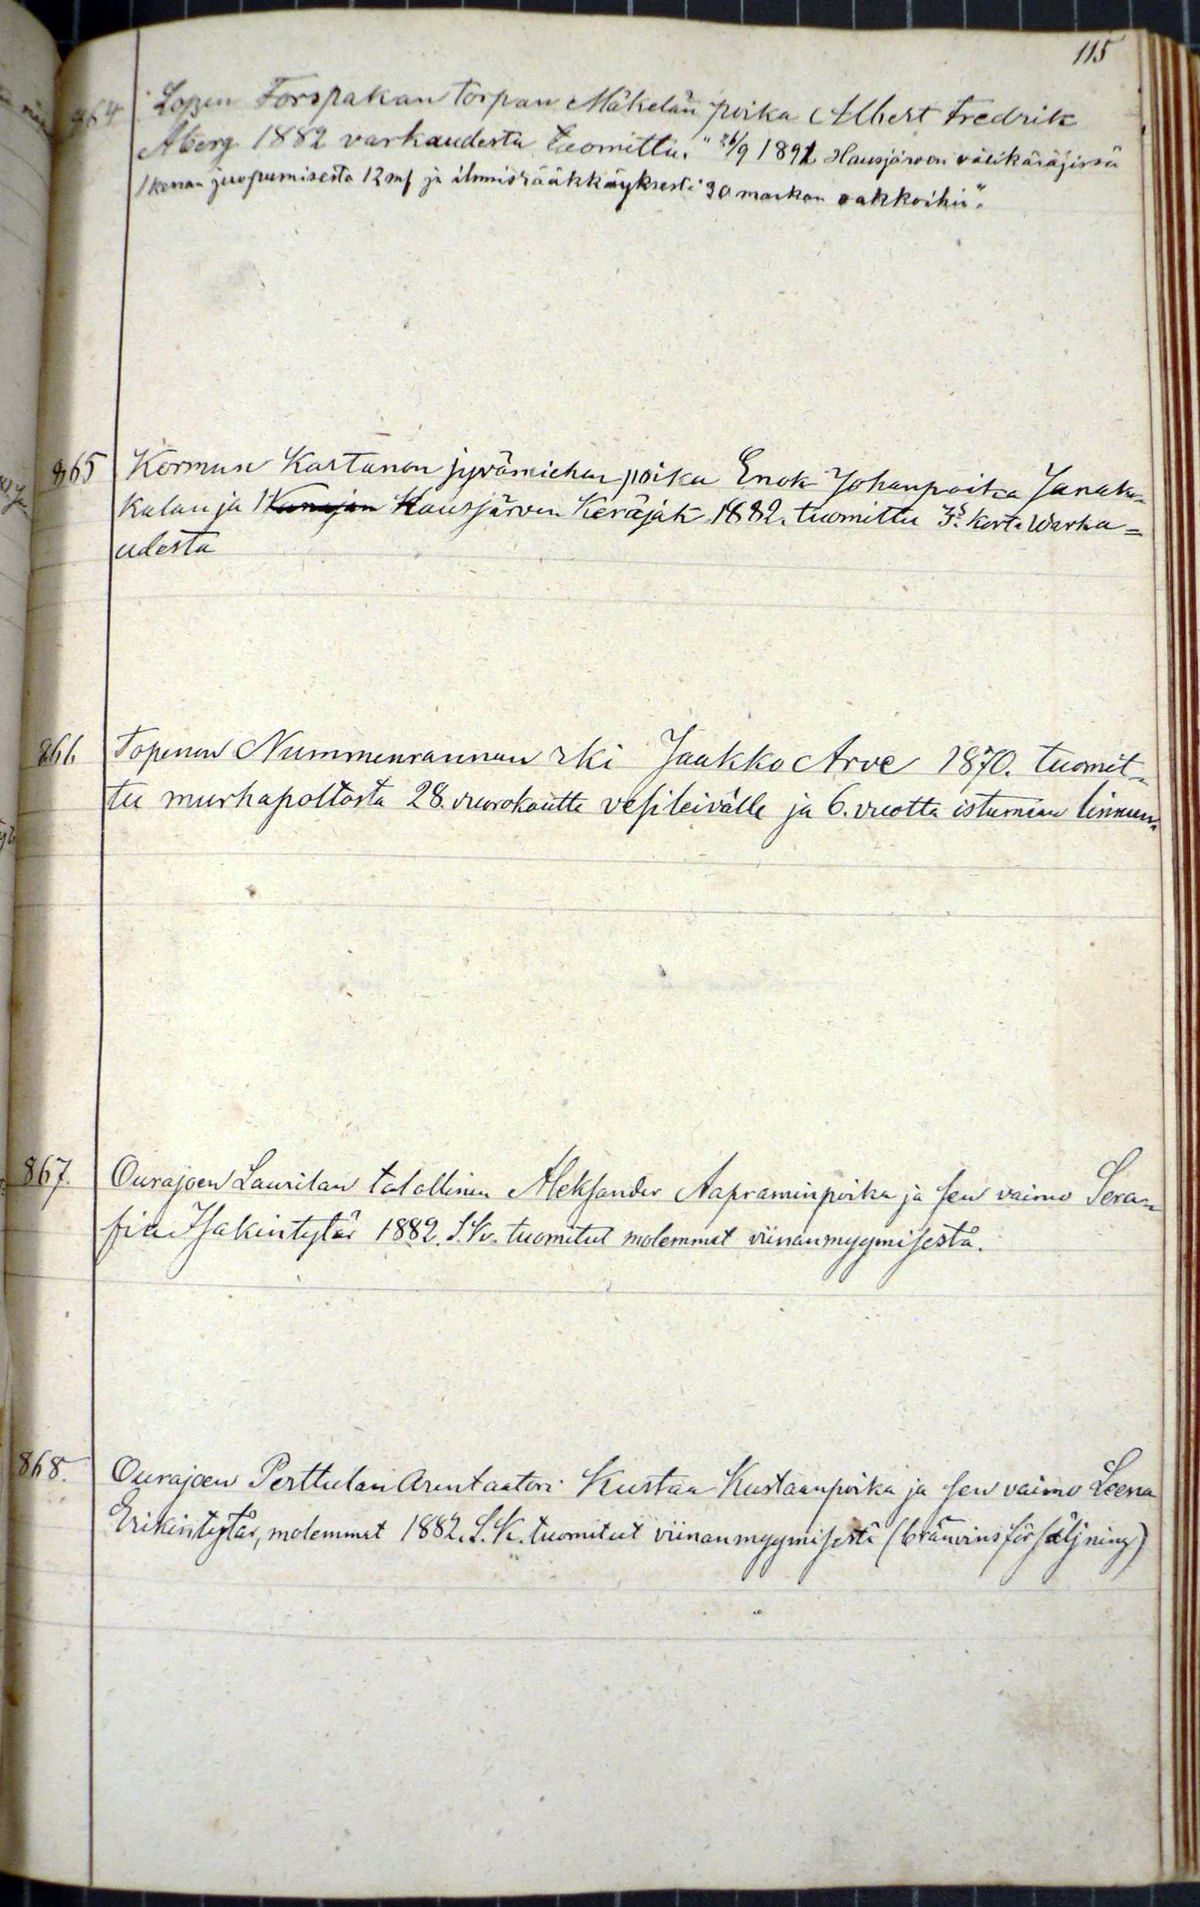 115
864 Lopen Forspakan torpan Mäkelän poika Albert Fredrik
Åberg 1882 varkaudesta tuomittu. " 26/9 1891 Hausjärven välikäräjissä
1 kerran juopumisesta 12 mk ja ihmisrääkkäyksestä 30 markan sakkoihin".
865 Kormun Kartanon jyvämiehen poika Enok Johanpoika Janak=
kalan ja Hausjärven Keräjät 1882. tuomittu 3s kerta Warka=
udesta
866 Topenon Nummenrannan rki Jaakko Arve 1870. tuomit=
tu murhapoltosta 28. vuorokautta vesileivälle ja 6. vuotta istumaan linnan.
867. Ourajoen Laurilan talollinen Aleksander Aapraminpoika ja sen vaimo Sera=
fia Isakintytär 1882. S.K. tuomitut molemmat viinanmyymisestä.
868. Ourajoen Perttulan Arentaatori Kustaa Kustaanpoika ja sen vaimo Leena
Erikintytär, molemmat 1882. S.K. tuomitut viinanmyymisestä (bränvinsförsäljning)